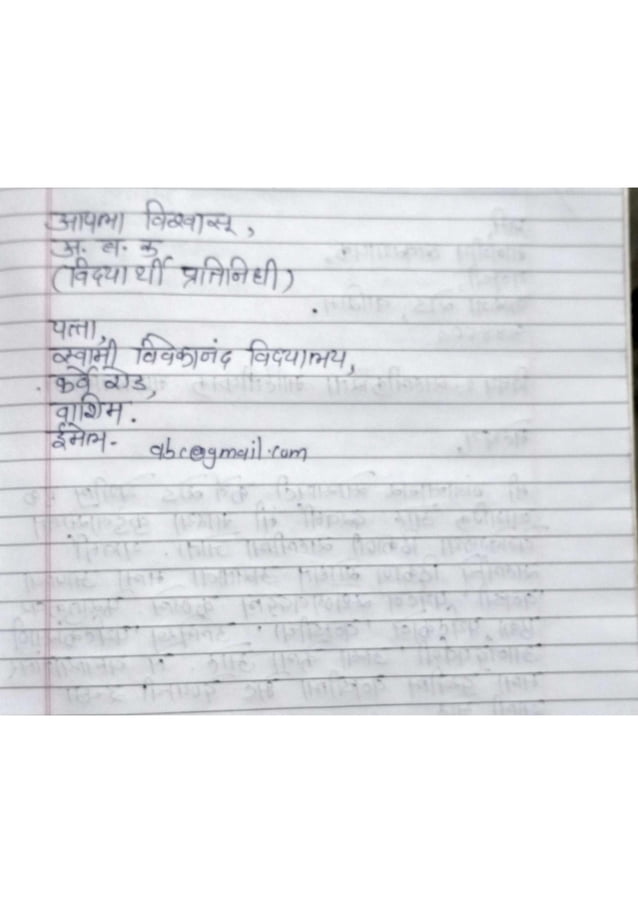 आपला विश्वासू,
अ. ब. क
(विद्यार्थी प्रतिनिधी)
पत्ता,
स्वामी विवेकानंद विद्यालय,
कर्वे रोड,
वाशिम.
ईमेल- abc@gmail.com